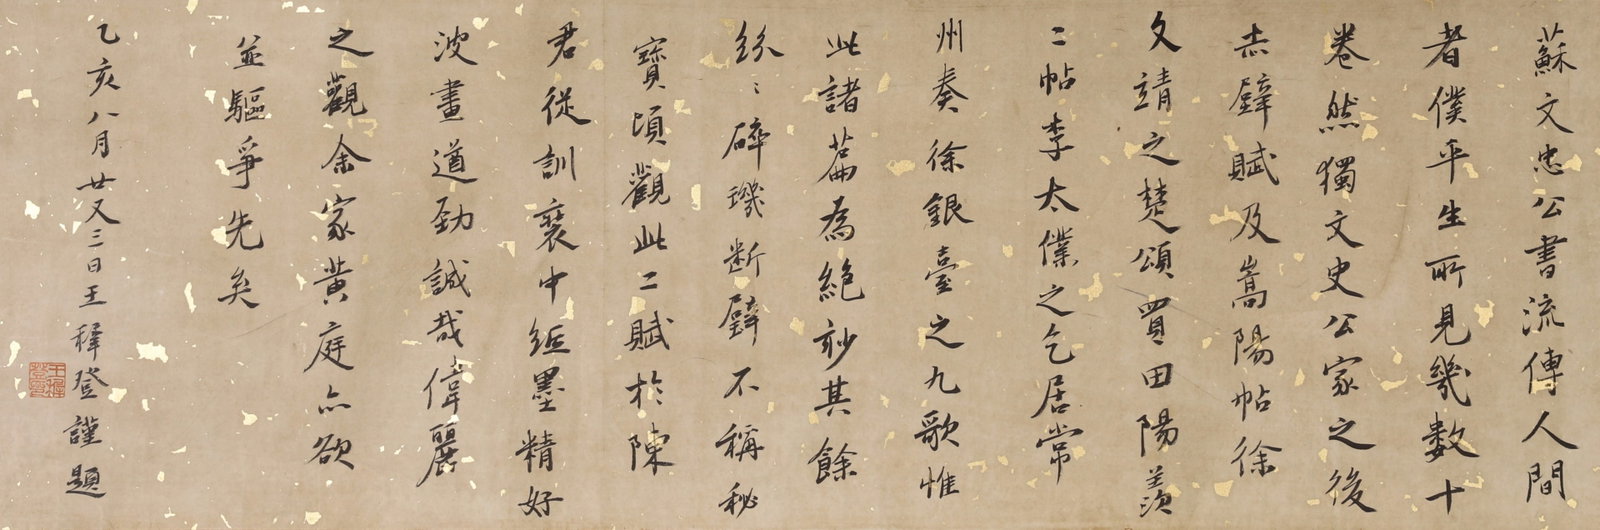 蘇文忠公書流傳人間
者僕平生所見幾數十
卷然獨文史公家之後
赤壁賦及嵩陽帖徐
文靖之楚頌買田陽羨
二帖李太僕之乞居常
州奏徐銀臺之九歌惟
此諸篇為絕妙其餘
紛〻碎璣斷璧不稱秘
寶頃觀此二賦於陳
君從訓裘中紙墨精好
波畫遒勁誠哉偉麗
之觀余家黃庭亦欲
並驅爭先矣
乙亥八月廿又三日王穉登謹題